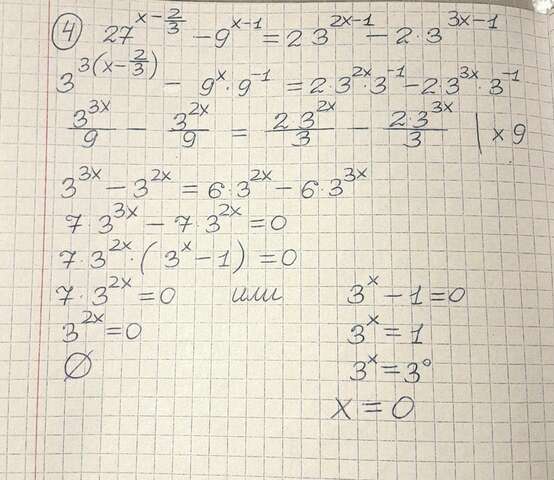 ④ 27^(x-2/3) - 9^(x-1) = 2 3^(2x-1) - 2·3^(3x-1)
3^(3(x-2/3)) - 9^x·9^(-1) = 2·3^(2x)·3^(-1) - 2·3^(3x)·3^(-1)
3^(3x)/9 - 3^(2x)/9 = 2·3^(2x)/3 - 2·3^(3x)/3 | ×9
3^(3x) - 3^(2x) = 6·3^(2x) - 6·3^(3x)
7·3^(3x) - 7·3^(2x) = 0
7·3^(2x)·(3^x - 1) = 0
7·3^(2x) = 0 или 3^x - 1 = 0
3^(2x) = 0 3^x = 1
∅ 3^x = 3^0
x = 0